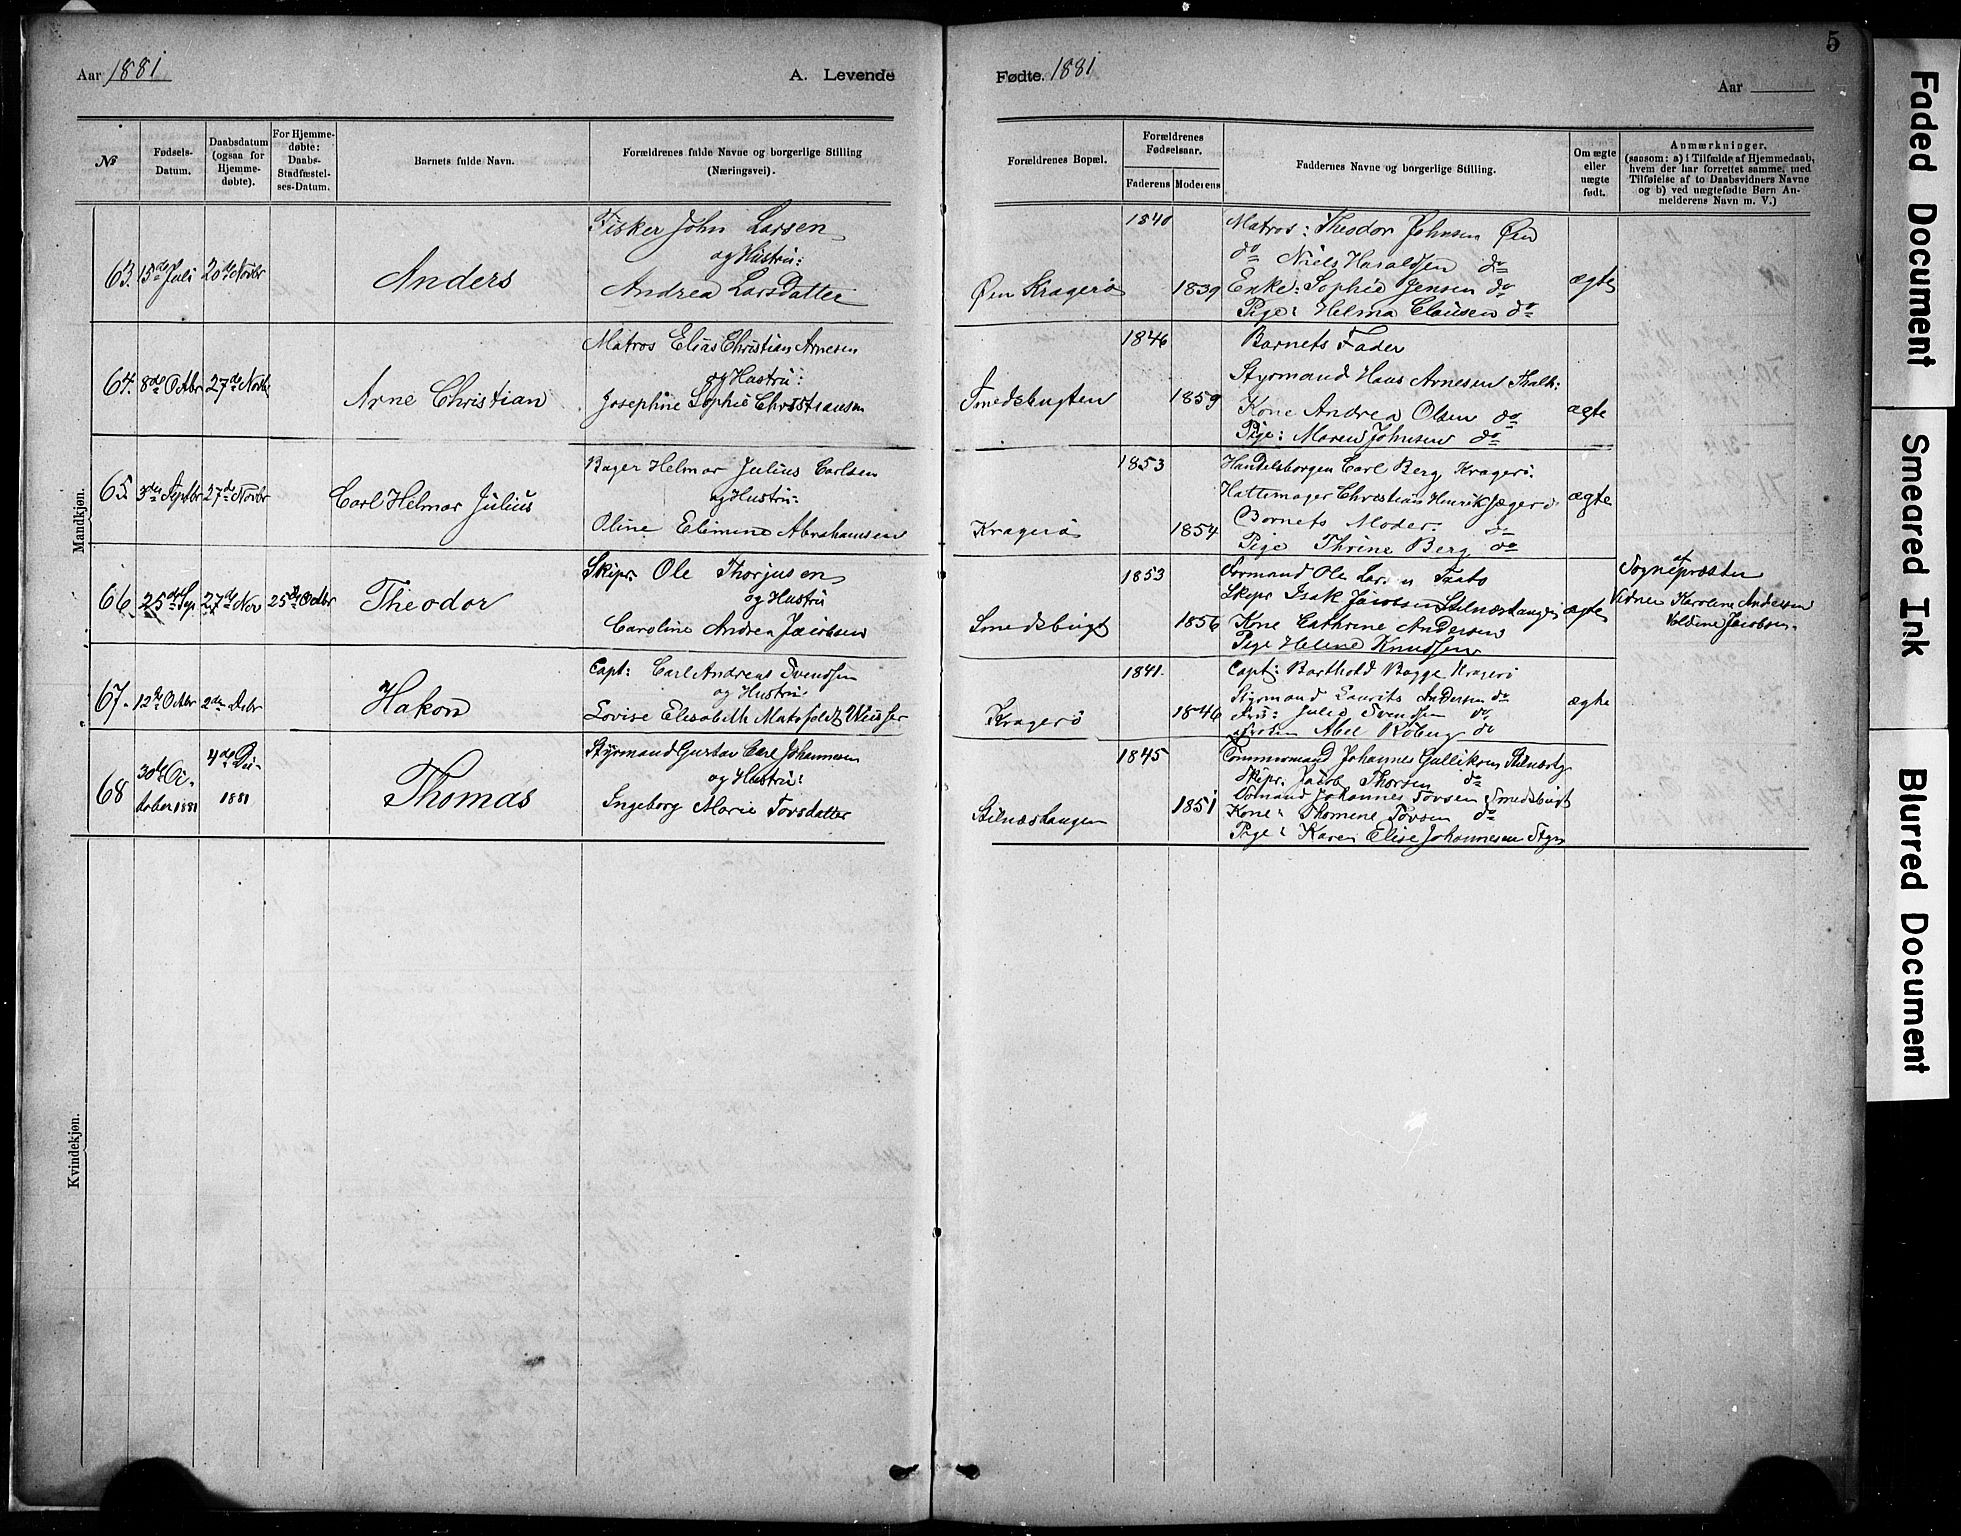 5
Aar 1881
A. Levende
Fødte. 1881
Aar
№
Fødsels-Datum.
Daabsdatum (ogsaa for Hjemme-døbte).
For Hjemme-døbte: Daabs-Stadfæstel-ses-Datum.
Barnets fulde Navn.
Forældrenes fulde Navne og borgerlige Stilling (Næringsvei).
Forældrenes Bopæl.
Forældrenes Fødselsaar.
Faderens
Moderens
Faddernes Navne og borgerlige Stilling.
Om ægte eller uægte født.
Anmærkninger.
(saasom: a) i Tilfælde af Hjemmedaab, hvem der har forrettet samme, med Tilføielse af to Daabsvidners Navne og b) ved uægtefødte Børn An-melderens Navn m. V.)
Mandkjøn.
63. 15de Juli 20de Novbr
Anders
Fisker John Larsen
og Hustru:
Andrea Larsdatter
Øen Kragerø
1840
1839
Matros: Theodor Johnsen Øen
do Niels Haraldsen do
Enke: Sophie Jensen do
Pige: Helma Clausen do
ægte
64. 8de Octbr 27de Novbr
Arne Christian
Matros Elias Christian Arnesen
og Hustru:
Josephine Sophie Christiansen
Smedsbugten
1846
1859
Barnets Fader
Styrmand Hans Arnesen
Kone Andrea Olsen do
Pige: Maren Johnsen do
ægte
65. 3de Septbr 27de Novbr
Carl Helmar Julius
Bager Helmar Julius Carlsen
og Hustru:
Oline Elimine Abrahamsen
Kragerø
1853
1854
Handelsborger Carl Berg Kragerø.
Hattemager Christian Henrik Jæger do
Barnets Moder. do
Pige Thrine Berg do
ægte
66. 25de Sep. 27de Nov 25de Octbr
Theodor
Skipr. Ole Thorjusen
og Hustru
Caroline Andrea Jacobsen
Smedsbugt
1853
1856
Formand Ole Larsen Taato
Skipr Isak Jacobsen Stilnæstangen
Kone Cathrine Andersen
Pige Helene Knudsen
ægte
af
Sognepræsten
Vidner Karoline Andersen
Valdine Jacobsen.
67. 12te Octbr 2den Decbr
Hakon
Capt: Carl Andreas Svendsen
og Hustru
Lovise Elisabeth
Kragerø
1841.
1846
Capt: Barthold Bagge Kragerø
Styrmand Laurits Andersen do
Fru: Julie Svendsen do
Abel Röberg do
ægte
68 30de Oc-
tober 1881
4de Dec-
1881
Thomas
Styrmand Gustav Carl Johannesen
og Hustru:
Ingeborg Marie Torsdatter
Stilnæstangen
1845
1851
Tømmermand Johannes Gulliksen
Skipr. Jacob Thorsen do
Johannes Tovsen Smedsbugt
Kone: Thomene Tovsen do
Pige: Karen Elise Johannesen
Kvindekjøn.
Faded Document
Smeared Ink
Blurred Document